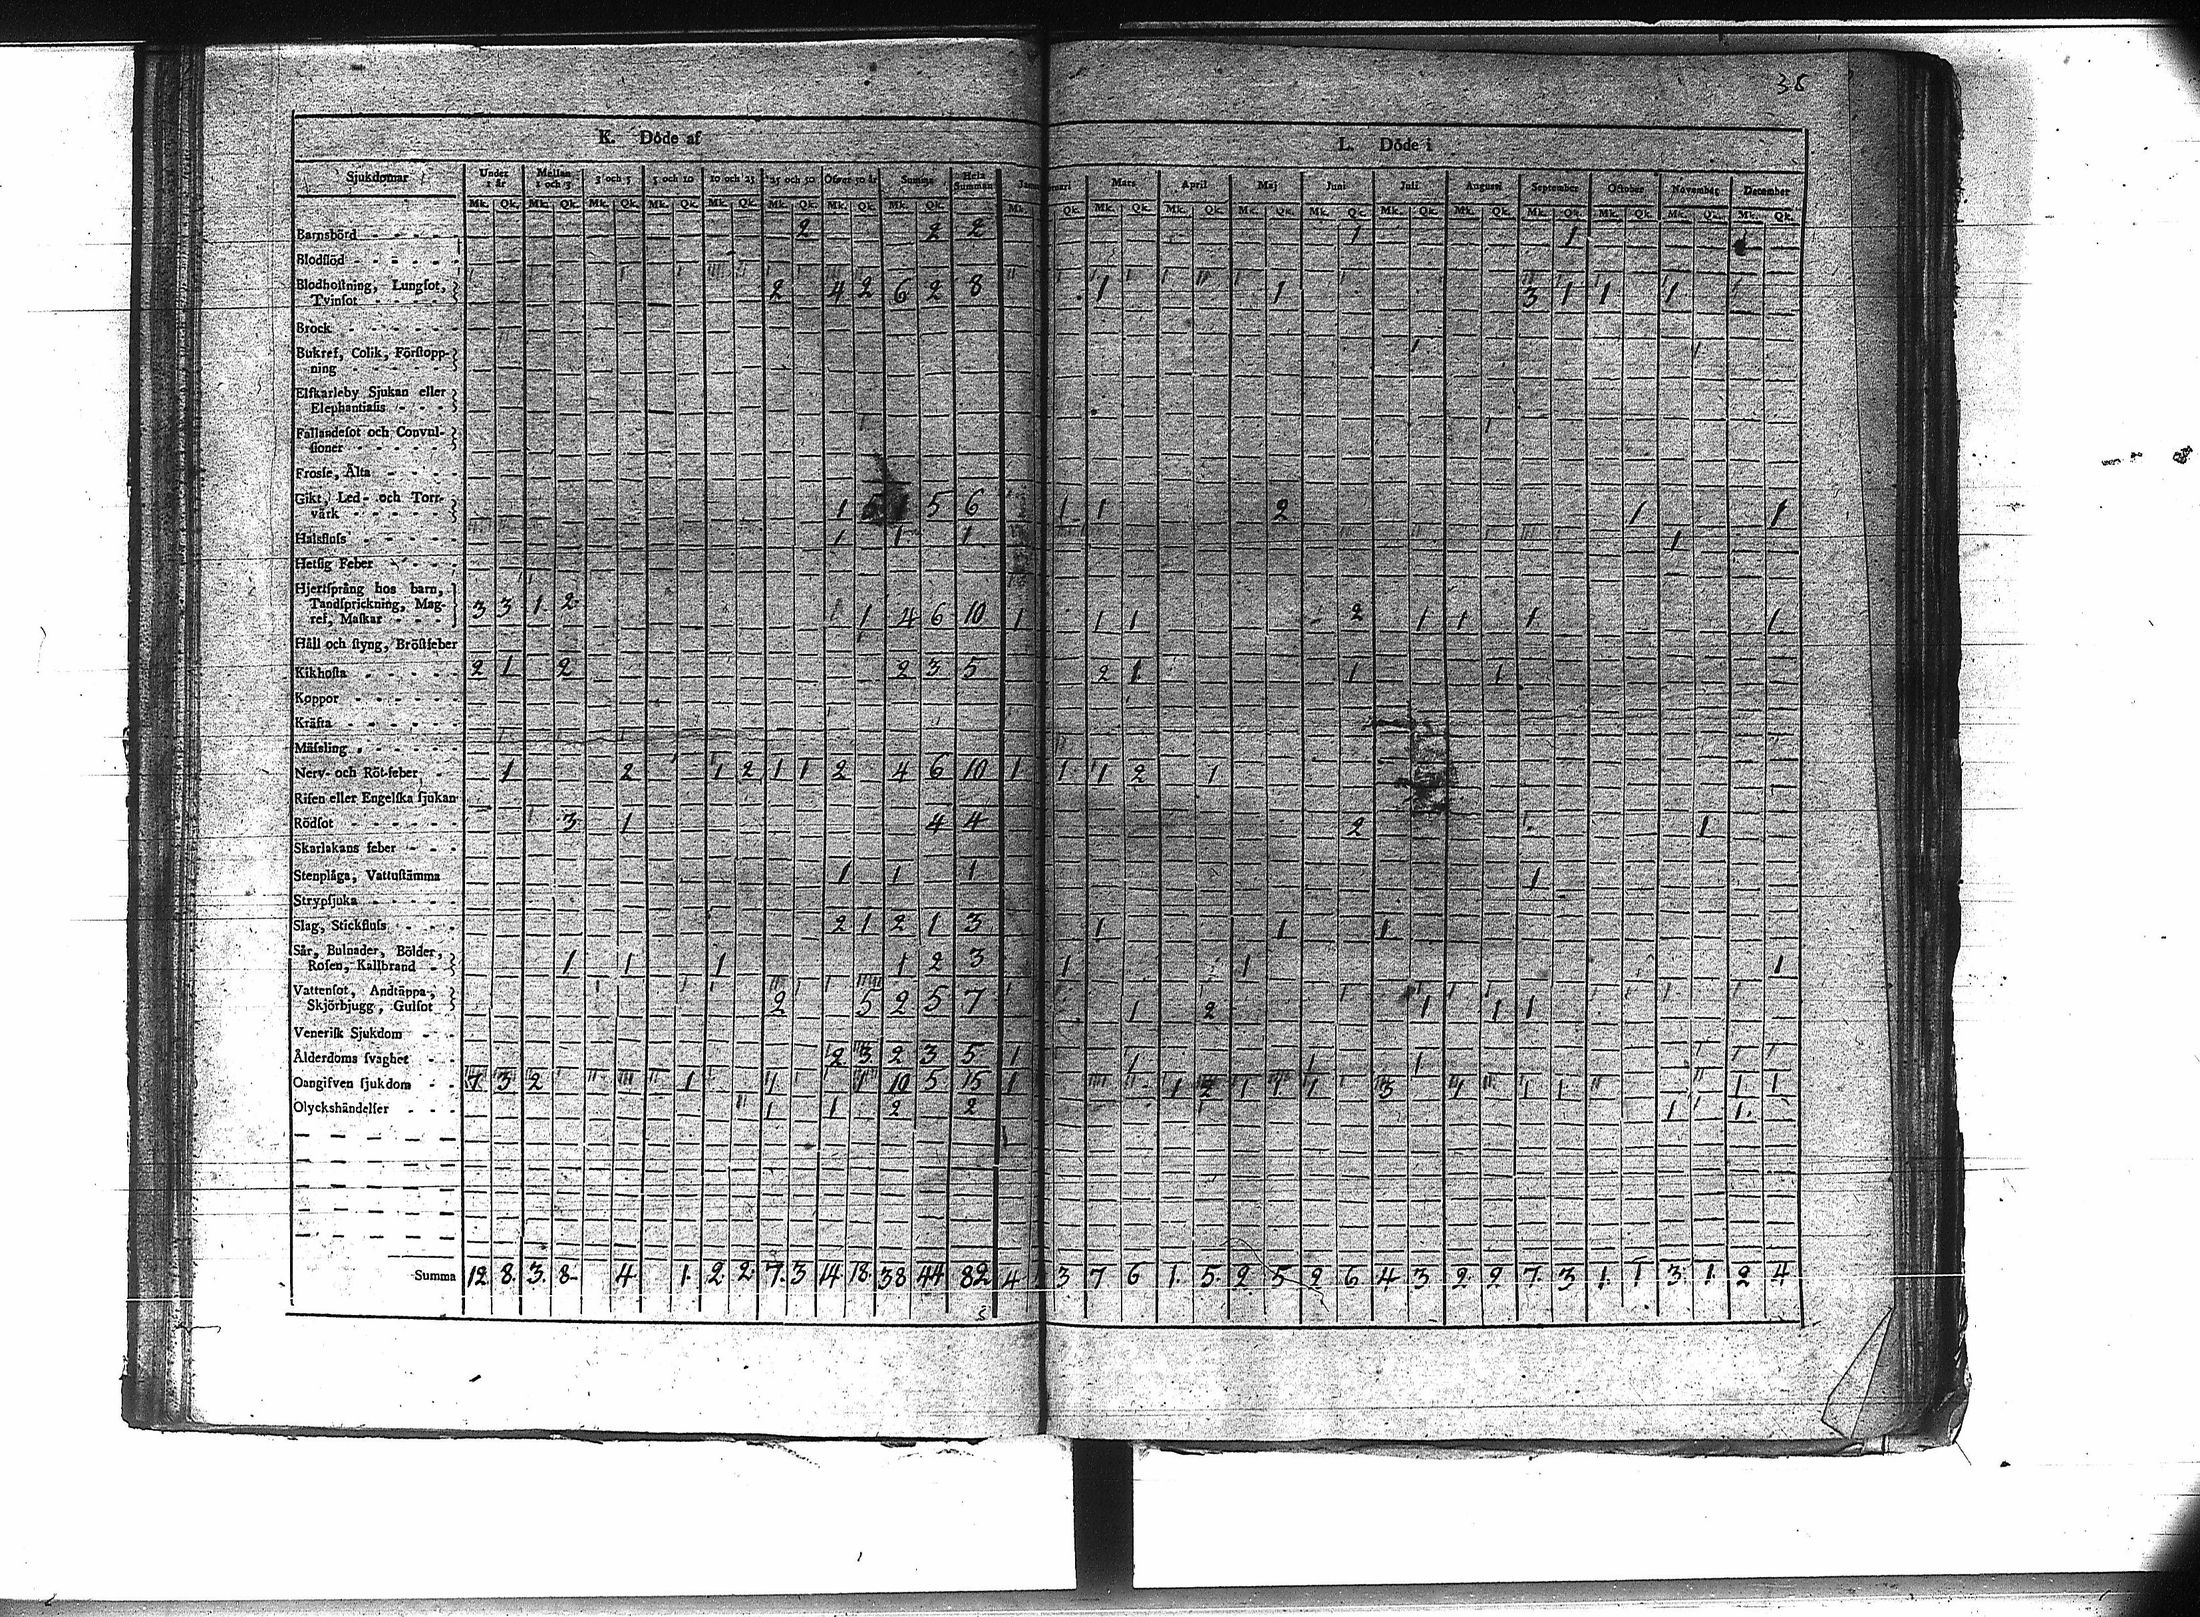 38
K. Döde af
L. Döde i
Sjukdomar Under 1 år Mellan 1 och 3 3 och 5 5 och 10 10 och 25 25 och 50 Öfver 50 år Summa Hela Summan Mars April Maj Juni Juli Augusti September October November December
Mk. Qk. Mk. Qk. Mk. Qk. Mk. Qk. Mk. Qk. Mk. Qk. Mk. Qk. Mk. Qk. Mk. Qk. Mk. Qk. Mk. Qk. Mk. Qk. Mk. Qk. Mk. Qk. Mk. Qk. Mk. Qk. Mk. Qk. Mk. Qk. Mk. Qk.
Barnsbörd 2 2 2 1 1
Blodflöd
Blodhoſtning, Lungſot,
Tvinſot 2 4 2 6 2 8 1 1 3 1 1 1
Brock
Bukref, Colik, Förſtopp-
ning
Elfkarleby Sjukan eller
Elephantiaſis
Fallandeſot och Convul-
ſioner
Frosſe, Älta
Gikt, Led- och Torr-
värk 1 5 1 5 6 1 1 2 1 1
Halsfluſs 1 1 1 1
Hetſig Feber
Hjertſprång hos barn,
Tandſprickning, Mag-
ref, Maſkar 3 3 1 2 1 4 6 10 1 1 1 2 1 1 1 1
Håll och ſtyng, Bröſtfeber
Kikhoſta 2 1 2 2 3 5 2 1 1 1
Koppor
Kräfta
Mäſsling
Nerv- och Röt-feber 1 2 1 2 1 1 2 4 6 10 1 1 1 2 1
Riſen eller Engelſka ſjukan
Rödſot 3 1 4 4 2 1
Skarlakans feber
Stenplåga, Vattuſtämma 1 1 1 1
Strypſjuka
Slag, Stickfluſs 2 1 2 1 3 1 1 1
Sår, Bulnader, Bölder,
Roſen, Kallbrand 1 1 1 1 2 3 1 1 1
Vattenſot, Andtäppa,
Skjörbjugg, Gulſot 2 5 2 5 7 1 2 1 1 1
Veneriſk Sjukdom
Ålderdoms ſvaghet 2 3 2 3 5 1 1 1 1
Oangifven ſjukdom 7 3 2 1 1 1 10 5 15 1 1 2 1 1 1 3 1 1 1 1 1
Olyckshändelſer 1 1 2 2 1 1
Summa 12 8 3 8 4 1 2 2 7 3 14 18 38 44 82 4 3 7 6 1 5 2 5 2 6 4 3 2 2 7 3 1 1 3 1 2 4